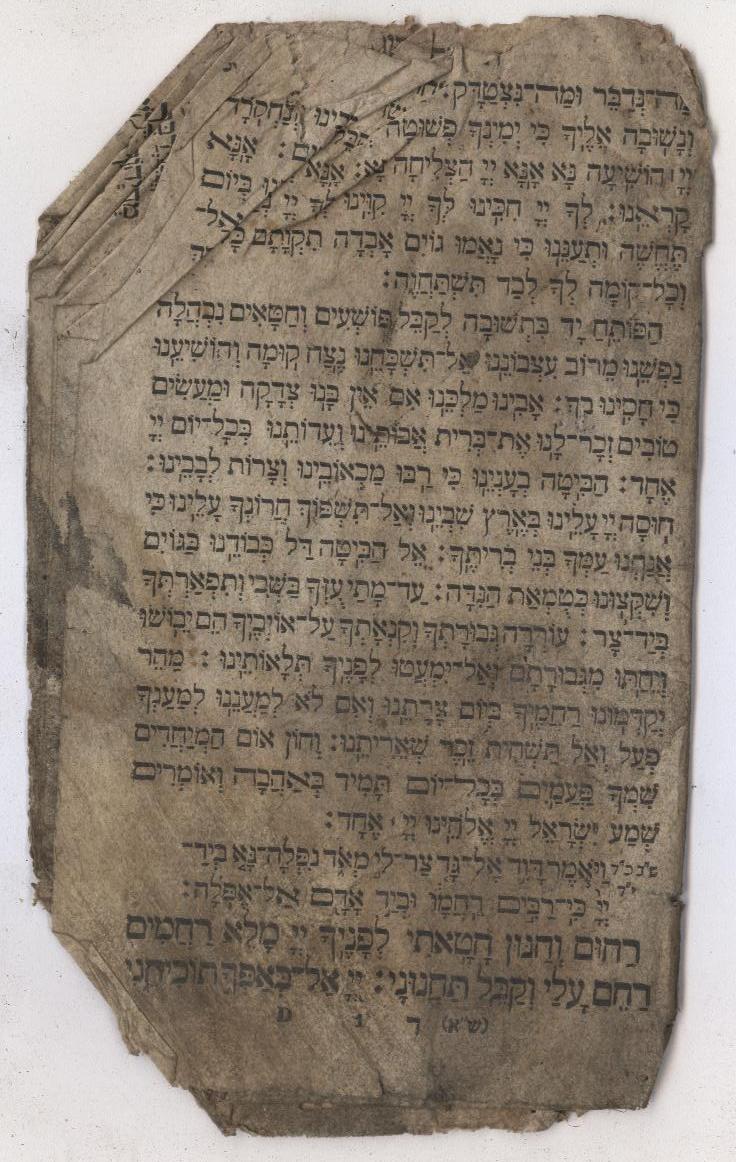 מַה־נְּדַבֵּר וּמַה־נִּצְטַדָּק׃
וְנָשׁוּבָה אֵלֶיךָ כִּי יְמִינְךָ פְשׁוּטָה
יְיָ הוֹשִׁיעָה נָּא אָנָּא יְיָ הַצְלִיחָה נָּא׃ אָנָּא
קָרְאֵנוּ׃ לְךָ יְיָ חִכִּינוּ לְךָ יְיָ קִוִּינוּ לְךָ יְיָ
תֶּחֱשֶׁה וּתְעַנֵּנוּ כִּי נָאֲמוּ גוֹיִם אָבְדָה תִקְוָתָם
וְכָל־קוֹמָה לְךָ לְבַד תִּשְׁתַּחֲוֶה׃
הַפּוֹתֵחַ יָד בִּתְשׁוּבָה לְקַבֵּל פּוֹשְׁעִים וְחַטָּאִים נִבְהֲלָה
נַפְשֵׁנוּ מֵרוֹב עִצְבוֹנֵנוּ אַל־תִּשְׁכָּחֵנוּ נֶצַח קוּמָה וְהוֹשִׁיעֵנוּ
כִּי חָסִינוּ בָךְ׃ אָבִינוּ מַלְכֵּנוּ אִם אֵין בָּנוּ צְדָקָה וּמַעֲשִׂים
טוֹבִים זְכָר־לָנוּ אֶת־בְּרִית אֲבוֹתֵינוּ וְעֵדוֹתֵנוּ בְּכָל־יוֹם יְיָ
אֶחָד׃ הַבִּיטָה בְעָנְיֵנוּ כִּי רַבּוּ מַכְאוֹבֵינוּ וְצָרוֹת לְבָבֵינוּ׃
חוּסָה יְיָ עָלֵינוּ בְּאֶרֶץ שִׁבְיֵנוּ וְאַל־תִּשְׁפּוֹךְ חֲרוֹנְךָ עָלֵינוּ כִּי
אֲנַחְנוּ עַמְּךָ בְּנֵי בְרִיתֶךָ׃ אֵל הַבִּיטָה דַּל כְּבוֹדֵנוּ בַּגּוֹיִם
וְשִׁקְּצוּנוּ כְּטֻמְאַת הַנִּדָּה׃ עַד־מָתַי עֻזְּךָ בַּשְּׁבִי וְתִפְאַרְתְּךָ
בְּיַד־צָר׃ עוֹרְרָה גְבוּרָתְךָ וְקִנְאָתְךָ עַל־אוֹיְבֶיךָ הֵם יֵבוֹשׁוּ
וְיֵחַתּוּ מִגְּבוּרָתָם וְאַל־יִמְעֲטוּ לְפָנֶיךָ תְּלָאוֹתֵינוּ׃ מַהֵר
יְקַדְּמוּנוּ רַחֲמֶיךָ בְּיוֹם צָרָתֵנוּ וְאִם לֹא לְמַעֲנֵנוּ לְמַעַנְךָ
פְעַל וְאַל תַּשְׁחִית זֵכֶר שְׁאֵרִיתֵנוּ׃ וְחוֹן אוֹם הַמְיַחֲדִים
שִׁמְךָ פַּעֲמַיִם בְּכָל־יוֹם תָּמִיד בְּאַהֲבָה וְאוֹמְרִים
שְׁמַע יִשְׂרָאֵל יְיָ אֱלֹהֵינוּ יְיָ אֶחָד׃
ש"ב כ"ד וַיֹּאמֶר דָּוִד אֶל־גָּד צַר־לִי מְאֹד נִפְּלָה־נָּא בְיַד־
י"ד יְיָ כִּי־רַבִּים רַחֲמָו וּבְיַד אָדָם אַל־אֶפֹּלָה׃
רַחוּם וְחַנּוּן חָטָאתִי לְפָנֶיךָ יְיָ מָלֵא רַחֲמִים
רַחֵם עָלַי וְקַבֵּל תַּחֲנוּנָי׃ יְיָ אַל־בְּאַפְּךָ תוֹכִיחֵנִי
(ש"א) ד 1 D